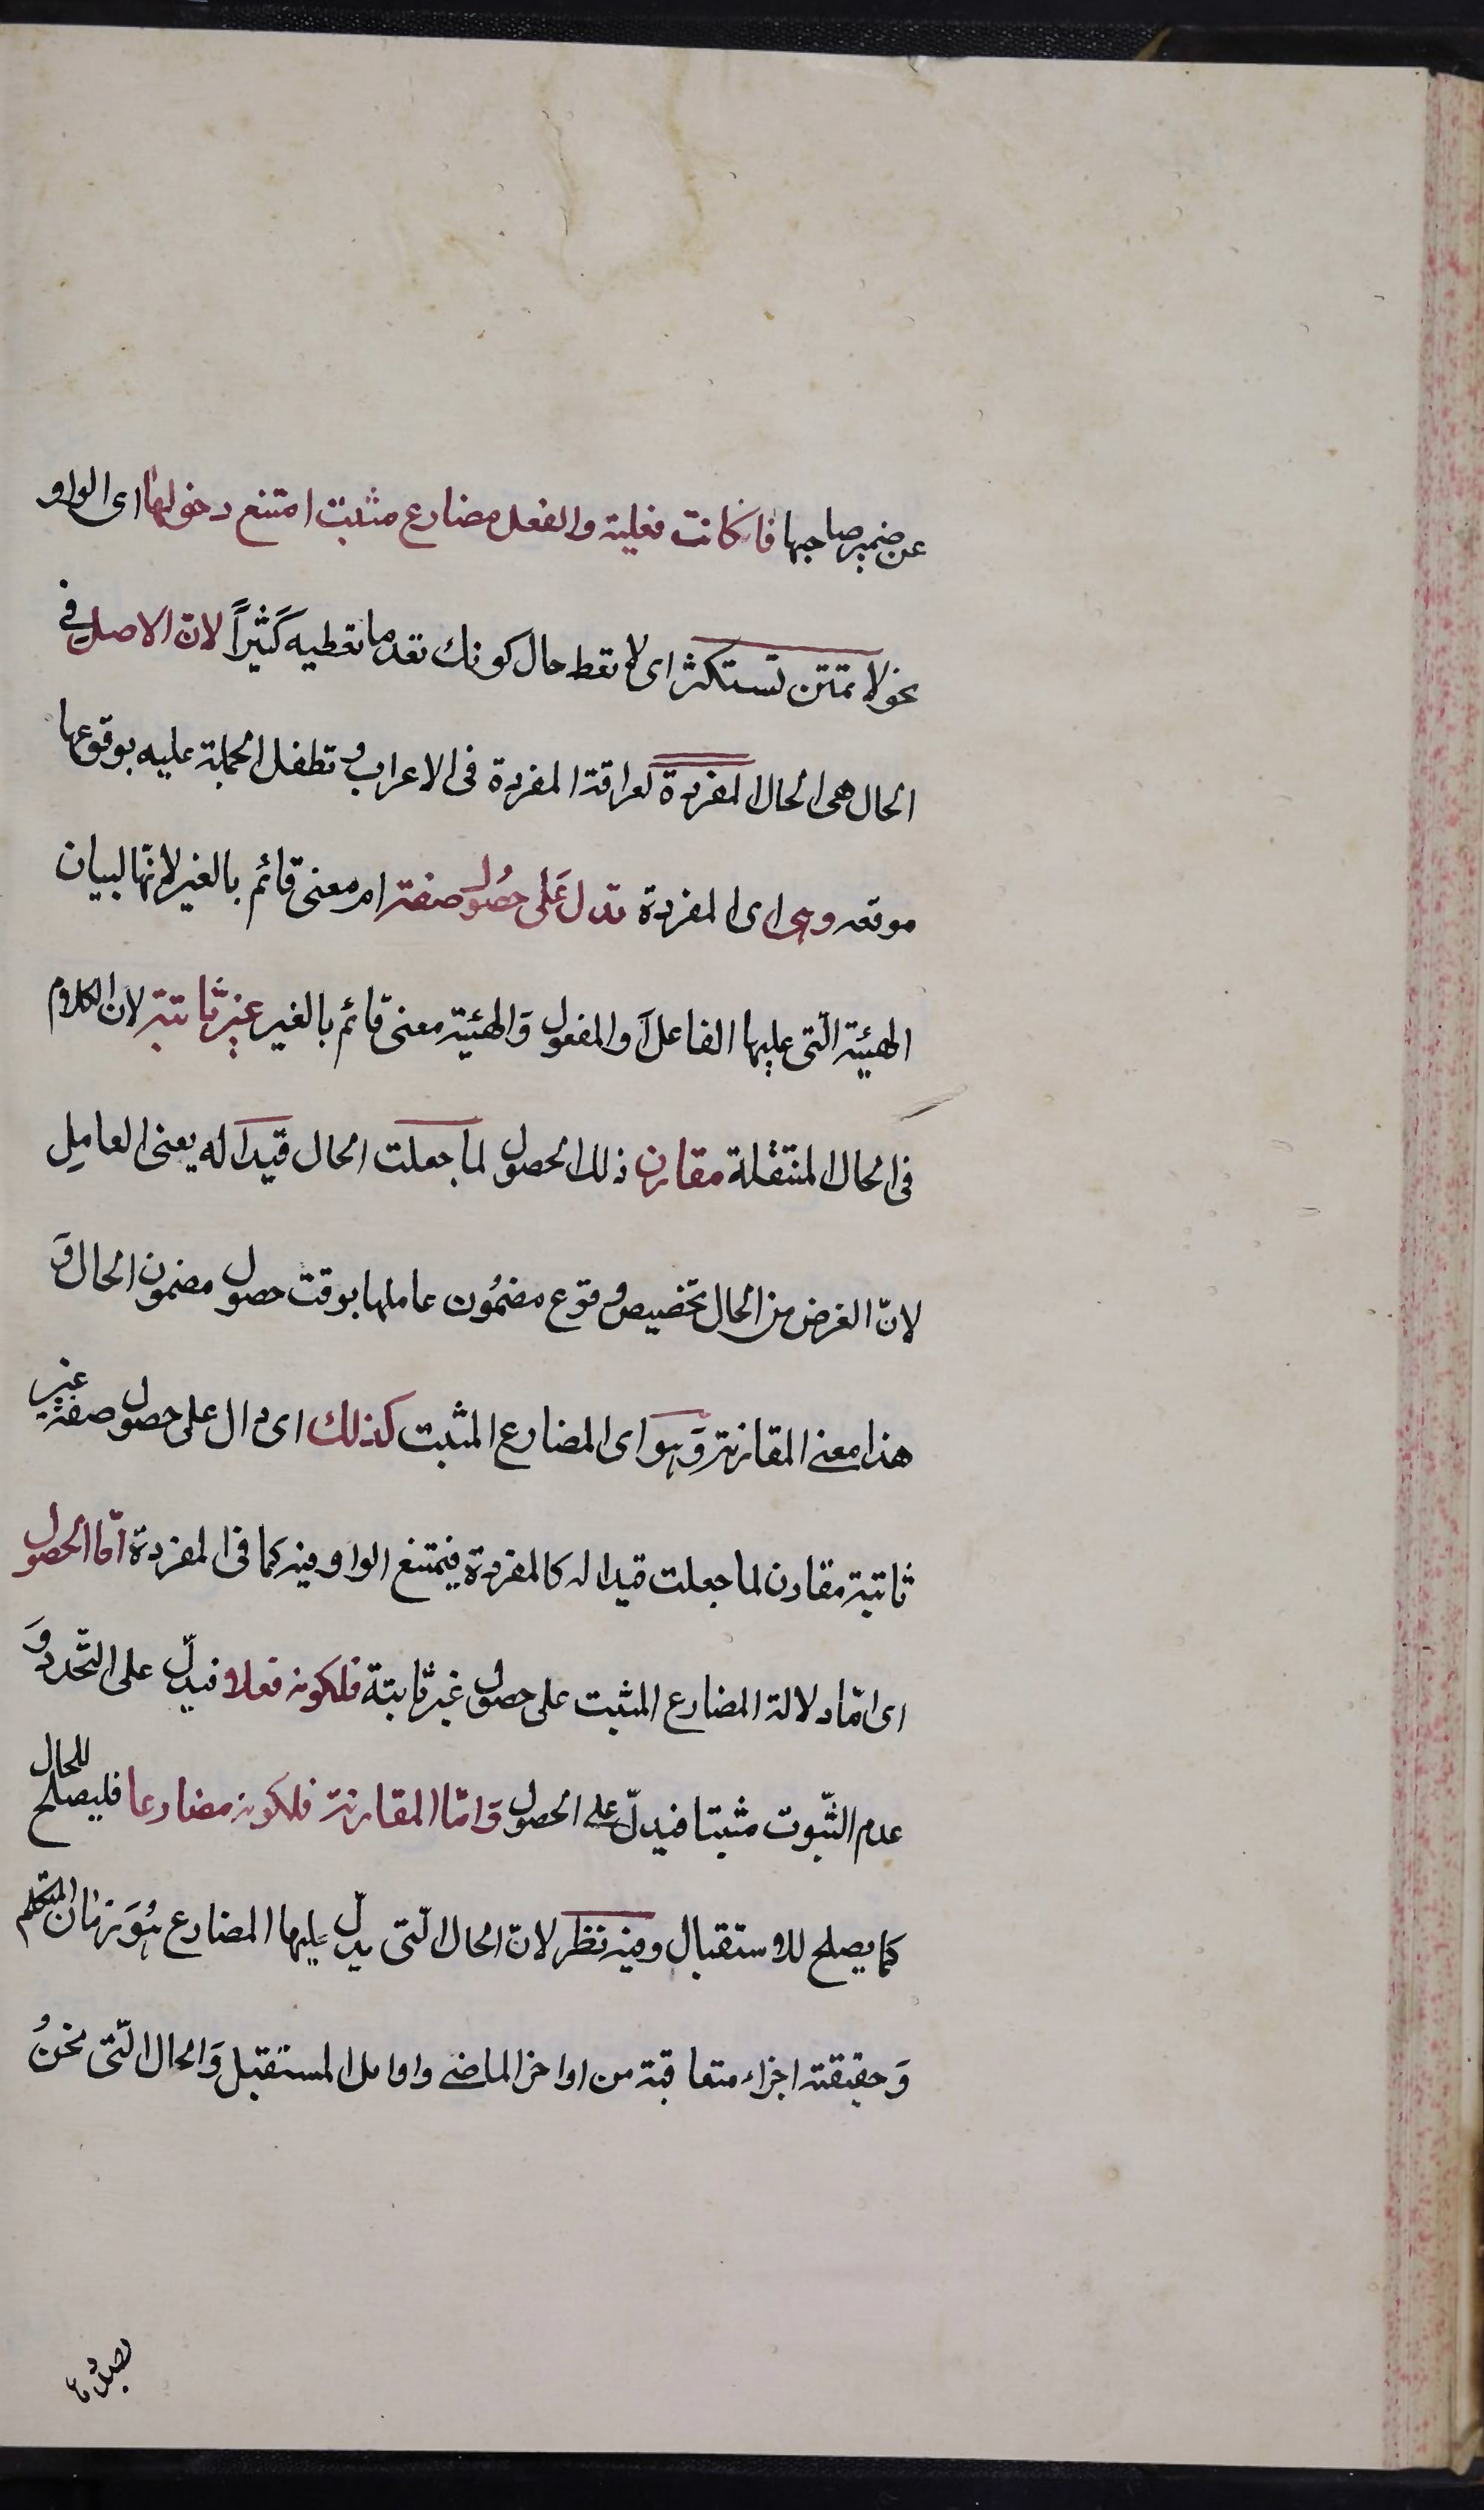 عن ضمير صاحبها فان كانت فعلية والفعل مضارع مثبت امتنع دخولها اى الواو
نحو لا تمنن تستكثر اى لا تعط حال كونك تعد ما تعطيه كَثيراً لانّ الاصل فى
الحال هى الحال المفردة لعراقة المفردة فى الاعراب وتطفل الجملة عليه بوقوعها
موقعه وهى اى المفردة تدل عَلى حصُول صفة امر معنى قائم بالغير لانّها لبيان
الهيئة الّتى عليها الفاعل اَو المفعول وَالهيئة معنى قائم بالغير غير ثابتة لان الكلام
فى الحال المنتقلة مقارن ذلك الحصول لما جعلت الحال قيدا له يعنى العامِل
لانّ الغرض من الحال تخصيص وقوع مضمُون عاملها بوقت حصول مضمون الحال وَ
هذا معنى المقارنة وَهو اى المضارع المثبت كذلك اى دال على حصول صفة غير
ثابتة مقارن لما جعلت قيدا له كالمفردة فيمتنع الواو فيه كما فى المفردة امّا الحصول
اى امّا دلالة المضارع المثبت على حصول غير ثابتة فلكونه فعلا فيدلّ على التّجدد وَ
عدم الثّبوت مثبتا فيدلّ على الحصول وَامّا المقارنة فلكونه مضارعا فليصلح للحال
كما يصلح للاستقبال وفيه نظر لانّ الحال الّتى يدلّ عليها المضارع هُوَ زمان المتكلم
وَحقيقته اجزاء متعاقبة من اواخر الماضى واوايل المستقبل وَالحال الّتى نحنُ